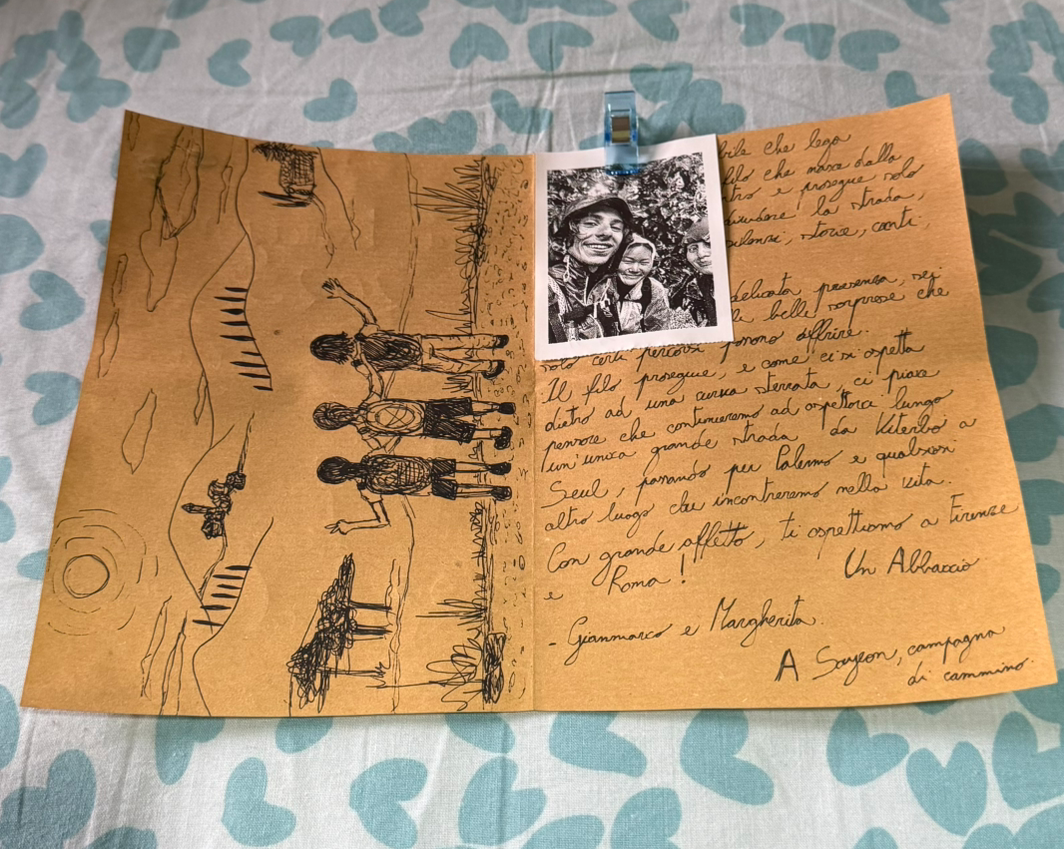 bile che lega
filo che nasce dalla
ntro e prosegue solo
dividere la strada,
silenzi, storie, canti,
delicata presenza, sei
le belle sorprese che
solo certi percorsi possono offrire.
Il filo prosegue, e come ci si aspetta
dietro ad una curva sterrata, ci piace
pensare che continueremo ad aspettarci lungo
un'unica grande strada da Viterbo a
Seul, passando per Palermo e qualsiasi
altro luogo che incontreremo nella vita.
Con grande affetto, ti aspettiamo a Firenze
e Roma!
Un Abbraccio
- Gianmarco e Margherita.
A Sayeon, compagna
di cammino.